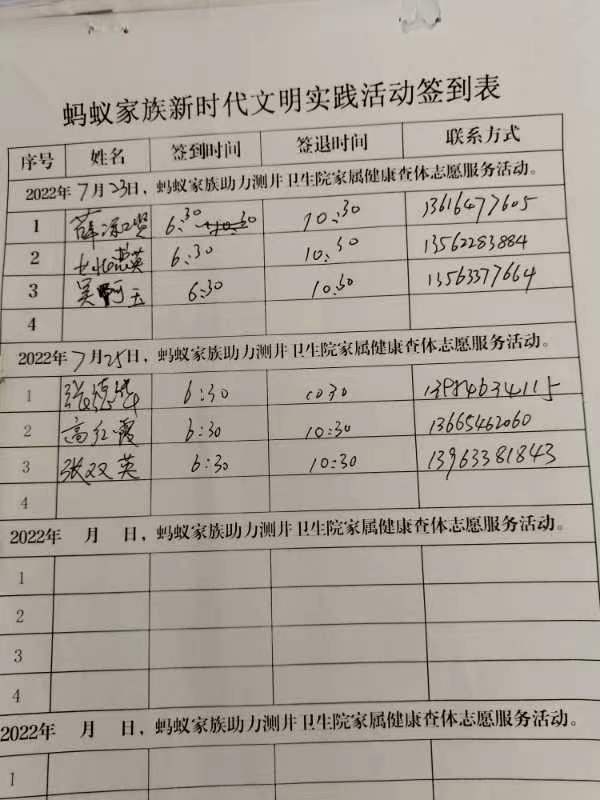 蚂蚁家族新时代文明实践活动签到表
序号 姓名 签到时间 签退时间 联系方式
2022年7月23日，蚂蚁家族助力测井卫生院家属健康查体志愿服务活动。
1 薛 6:30 10:30 13616477605
2 英 6:30 10:30 13562283884
3 吴 玉 6:30 10:30 13563377664
4
2022年7月25日，蚂蚁家族助力测井卫生院家属健康查体志愿服务活动。
1 张德 6:30 1030
2 高红霞 6:30 10:30 13665462060
3 张双英 6:30 10:30 13963381843
4
2022年 月 日，蚂蚁家族助力测井卫生院家属健康查体志愿服务活动。
1
2
3
4
2022年 月 日，蚂蚁家族助力测井卫生院家属健康查体志愿服务活动。
1